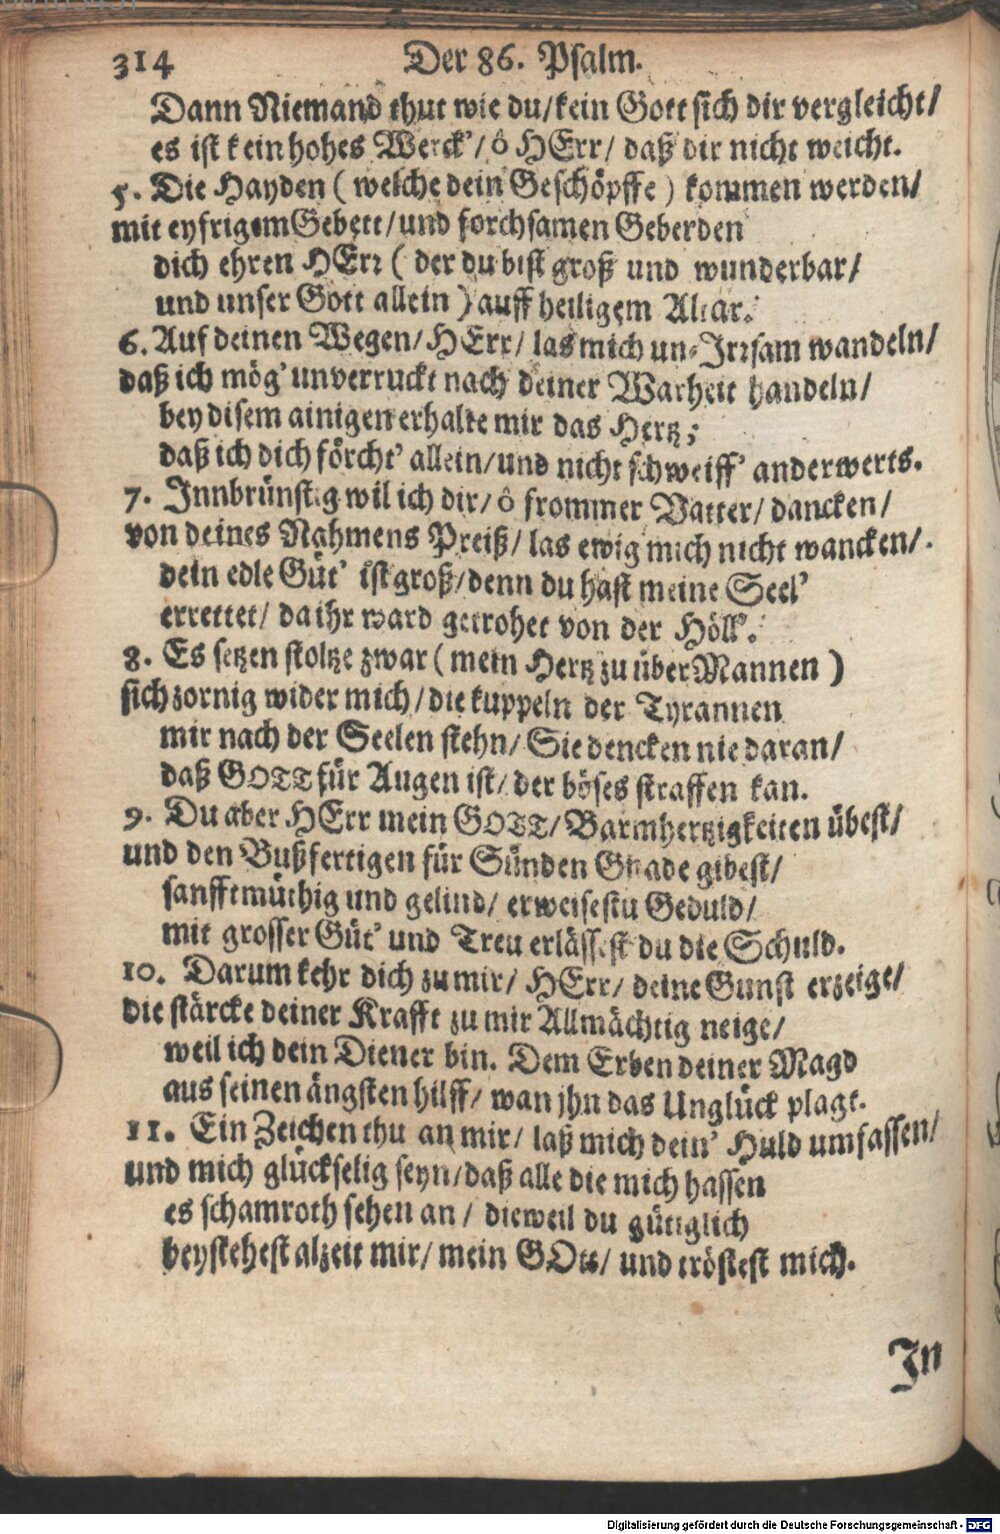 314 Der 86. Psalm.
Dann Niemand thut wie du/kein Gott sich dir vergleicht/
es ist kein hohes Werck'/ ô HErr/ daß dir nicht weicht.
5. Die Hayden ( welche dein Geschöpffe ) kommen werden/
mit eyfrigem Gebett/und forchsamen Geberden
dich ehren HErr ( der du bist groß und wunderbar/
und unser Gott allein ) auff heiligem Altar.
6. Auf deinen Wegen/ HErr/ las mich un-Irrsam wandeln/
daß ich mög' unverruckt nach deiner Warheit handeln/
bey disem ainigen erhalte mir das Hertz;
daß ich dich förcht' allein/und nicht schweiff' anderwerts.
7. Innbrünstig wil ich dir/ ô frommer Vatter/ dancken/
von deines Nahmens Preiß/ las ewig mich nicht wancken/
dein edle Güt' ist groß/denn du hast meine Seel'
errettet/ da ihr ward getrohet von der Höll'.
8. Es setzen stoltze zwar ( mein Hertz zu über Mannen )
sich zornig wider mich/ die kuppeln der Tyrannen
mir nach der Seelen stehn/ Sie dencken nie daran/
daß GOTT für Augen ist/ der böses straffen kan.
9. Du aber HErr mein GOTT/ Barmhertzigkeiten übest/
und den Bußfertigen für Sünden Gnade gibest/
sanfftmüthig und gelind/ erweisestu Geduld/
mit grosser Güt' und Treu erlässest du die Schuld.
10. Darum kehr dich zu mir/ HErr/ deine Gunst erzeige/
die stärcke deiner Krafft zu mir Allmächtig neige/
weil ich dein Diener bin. Dem Erben deiner Magd
aus seinen ängsten hilff/ wan jhn das Unglück plagt.
11. Ein Zeichen thu an mir/ laß mich dein' Huld umfassen/
und mich glückselig seyn/daß alle die mich hassen
es schamroth sehen an / dieweil du gütiglich
beystehest alzeit mir/ mein GOtt/ und tröstest mich.
In
Digitalisierung gefördert durch die Deutsche Forschungsgemeinschaft - DFG